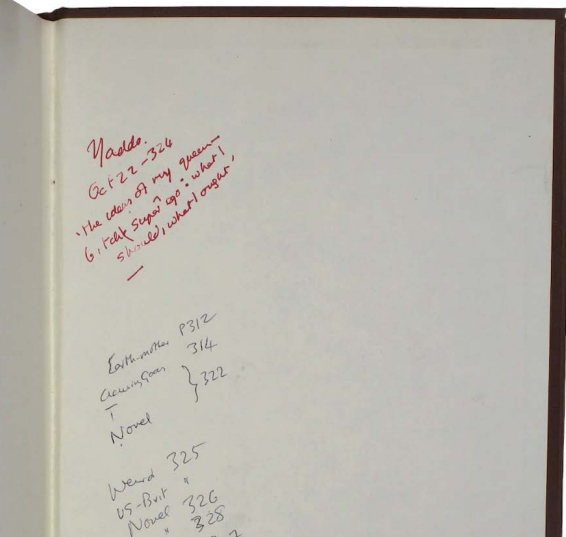 Yaddo.
Oct 22 - 324
'the ideas of my queen—
bitch super ego: what I
should, what I ought,
—
Earth-mother P312
314
} 322
I
Novel
Weird 325
US-Brit "
Novel 326
" 328